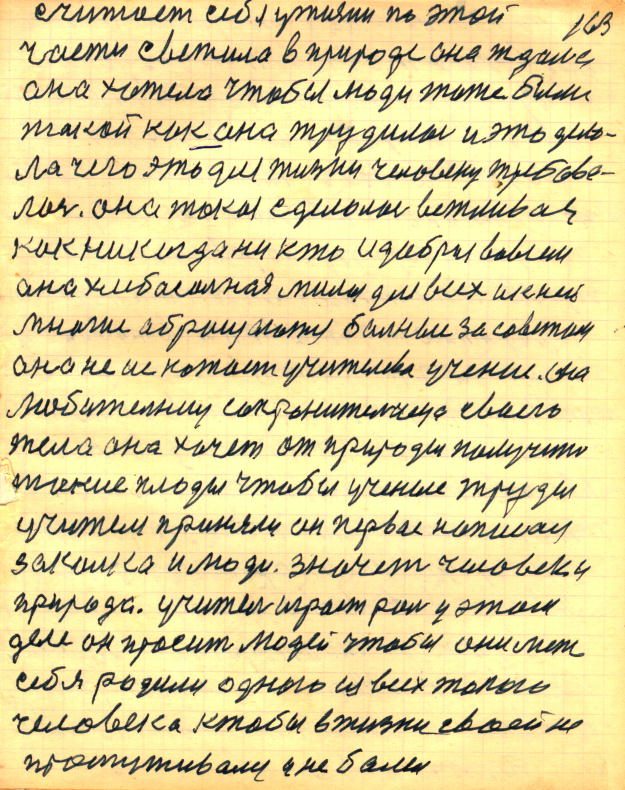 считает себя ужини по этой 163
части светила в природе она ждала
она хотела чтобы люди тоже были
такой как она трудилас и это дела-
ла чего это для жизни человеку требова-
лоя. она такоя сделалас вежливая
как никогда ни кто и добрая вовсем
она хлебасолная милая для всех и к ней
многие абращаются балные за советом
она не искажает учителева учение. она
любителница сохранителница своего
тела она хочет от природы получить
такие плоды чтобы ученые труды
учителя приняли он первае написал
закалка и люди. значет человек и
природа. учител играет рол у этом
деле он просит людей чтобы они меж
себя родили одного из всех такого
человека ктобы в жизни своей не
простуживалия и не балел